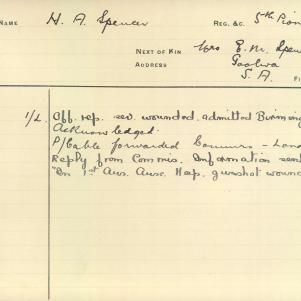 NAME H. A. Spencer REG. &C. 5th Pion
NEXT OF KIN Mrs E. M. Spen
ADDRESS Goolwa
S. A.
1/2. Off. rep. sev. wounded. admitted Birming
Acknowledged.
P/Cable forwarded Commrs - Lond
Reply from Commis. Information sent
"In 1st Aus. Aux. Hsp. gunshot wound